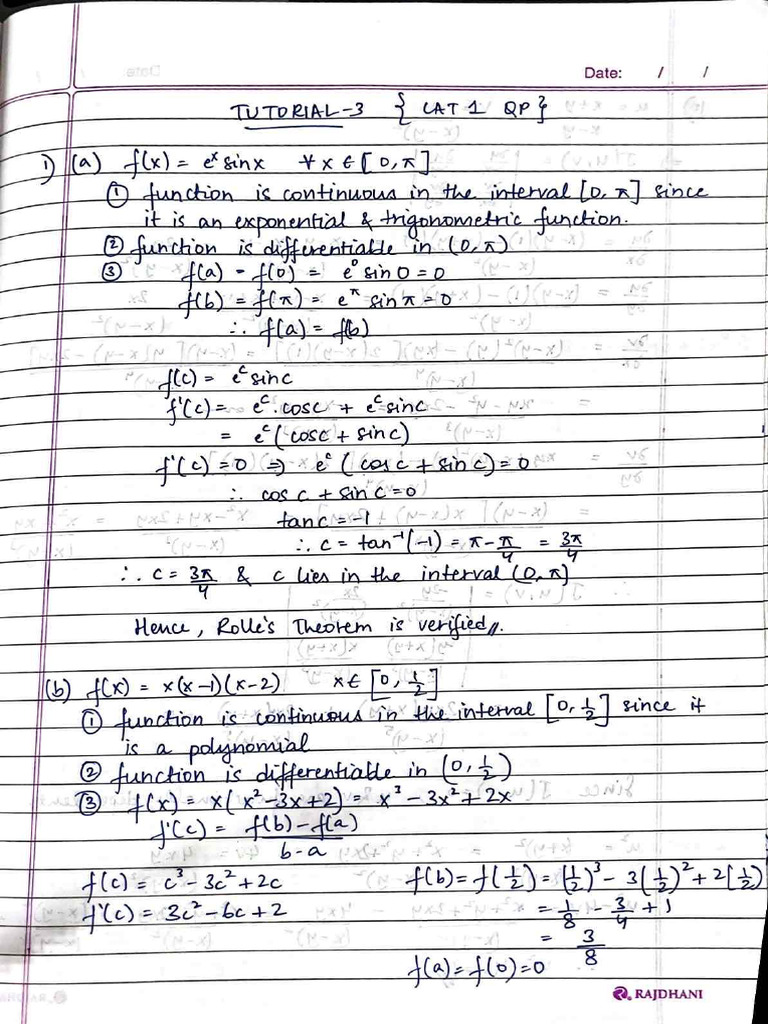 Date: / /
TUTORIAL-3 { CAT 1 QP}
1) (a) f(x) = eˣ sinx ∀ x ∈ [0, π]
① function is continuous in the interval [0, π] since
it is an exponential & trigonometric function.
② function is differentiable in (0, π)
③ f(a) = f(0) = e⁰ sin 0 = 0
f(b) = f(π) = e^π sin π = 0
∴ f(a) = f(b)
f(c) = eᶜ sinc
f'(c) = eᶜ. cosc + eᶜ sinc
= eᶜ (cosc + sinc)
f'(c) = 0 ⇒ eᶜ ( cos c + sin c) = 0
∴ cos c + sin c = 0
tan c = -1
∴ c = tan⁻¹(-1) = π - π/4 = 3π/4
∴ c = 3π/4 & c lies in the interval (0, π]
Hence, Rolle's Theorem is verified //.
(b) f(x) = x(x-1)(x-2) x ∈ [0, 1/2]
① function is continuous in the interval [0, 1/2] since it
is a polynomial
② function is differentiable in (0, 1/2)
③ f(x) = x(x²-3x+2) = x³ - 3x² + 2x
f'(c) = f(b) - f(a) / b-a
f(c) = c³ - 3c² + 2c f(b) = f(1/2) = (1/2)³ - 3(1/2)² + 2(1/2)
f'(c) = 3c² - 6c + 2 = 1/8 - 3/4 + 1
= 3/8
f(a) = f(0) = 0
RAJDHANI